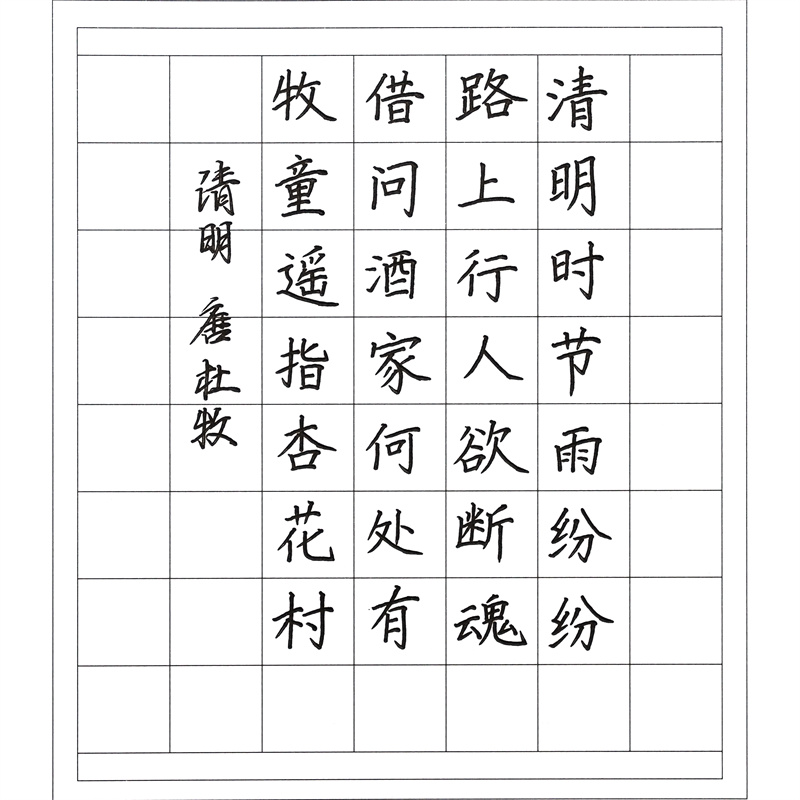 清明时节雨纷纷
路上行人欲断魂
借问酒家何处有
牧童遥指杏花村
清明 唐杜牧